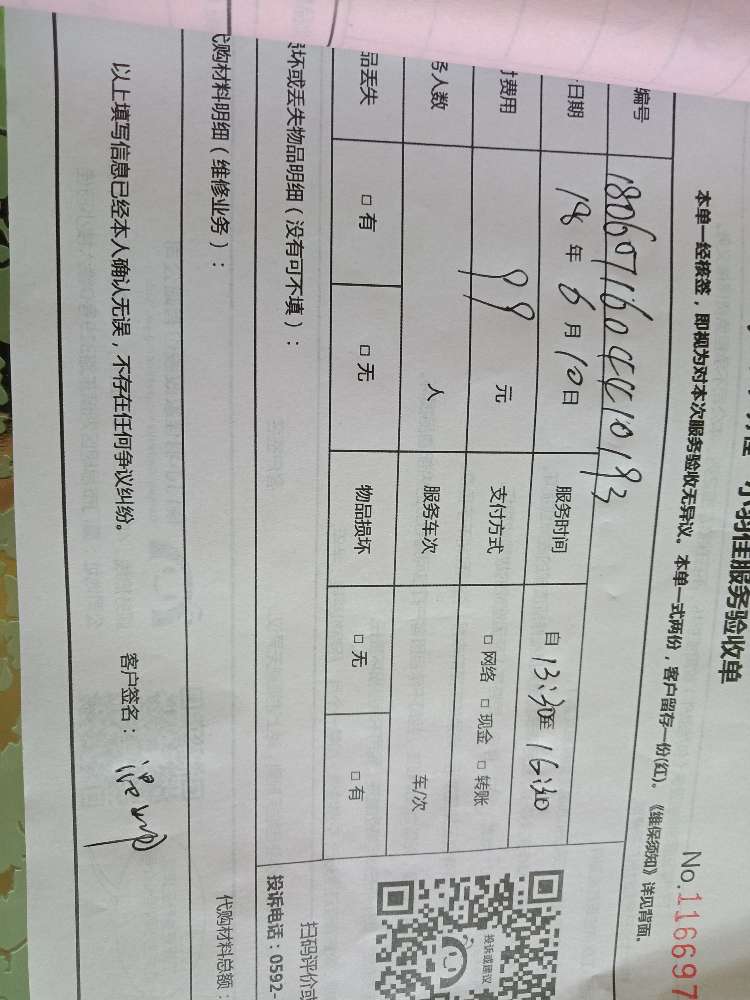 小羽佳服务验收单
No.116697
本单一经核签，即视为对本次服务验收无异议。本单一式两份，客户留存一份(红)。《维保须知》详见背面。
编号 180607160440193
日期 18年6月10日 服务时间 自13:30至16:30
费用 99元 支付方式 □网络 □现金 □转账
人数 人 服务车次 车/次
品丢失 □有 □无 物品损坏 □无 □有
投诉或建议
扫码评价或
损坏或丢失物品明细（没有可不填）：
投诉电话：0592-
代购材料明细（维修业务）：
代购材料总额：
以上填写信息已经本人确认无误，不存在任何争议纠纷。
客户签名：